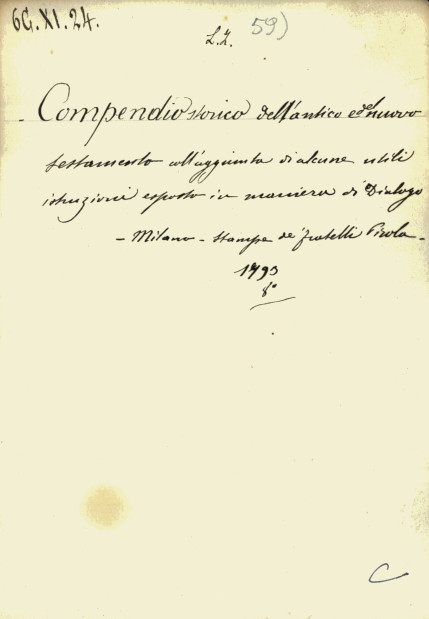 6G.XI.24.
L.Z. 59)
Compendio storico dell'antico e del nuovo
testamento coll'aggiunta di alcune utili
istruzioni esposto in maniera di Dialogo
- Milano - Stampe de' fratelli Pirola -
1793
8°
C